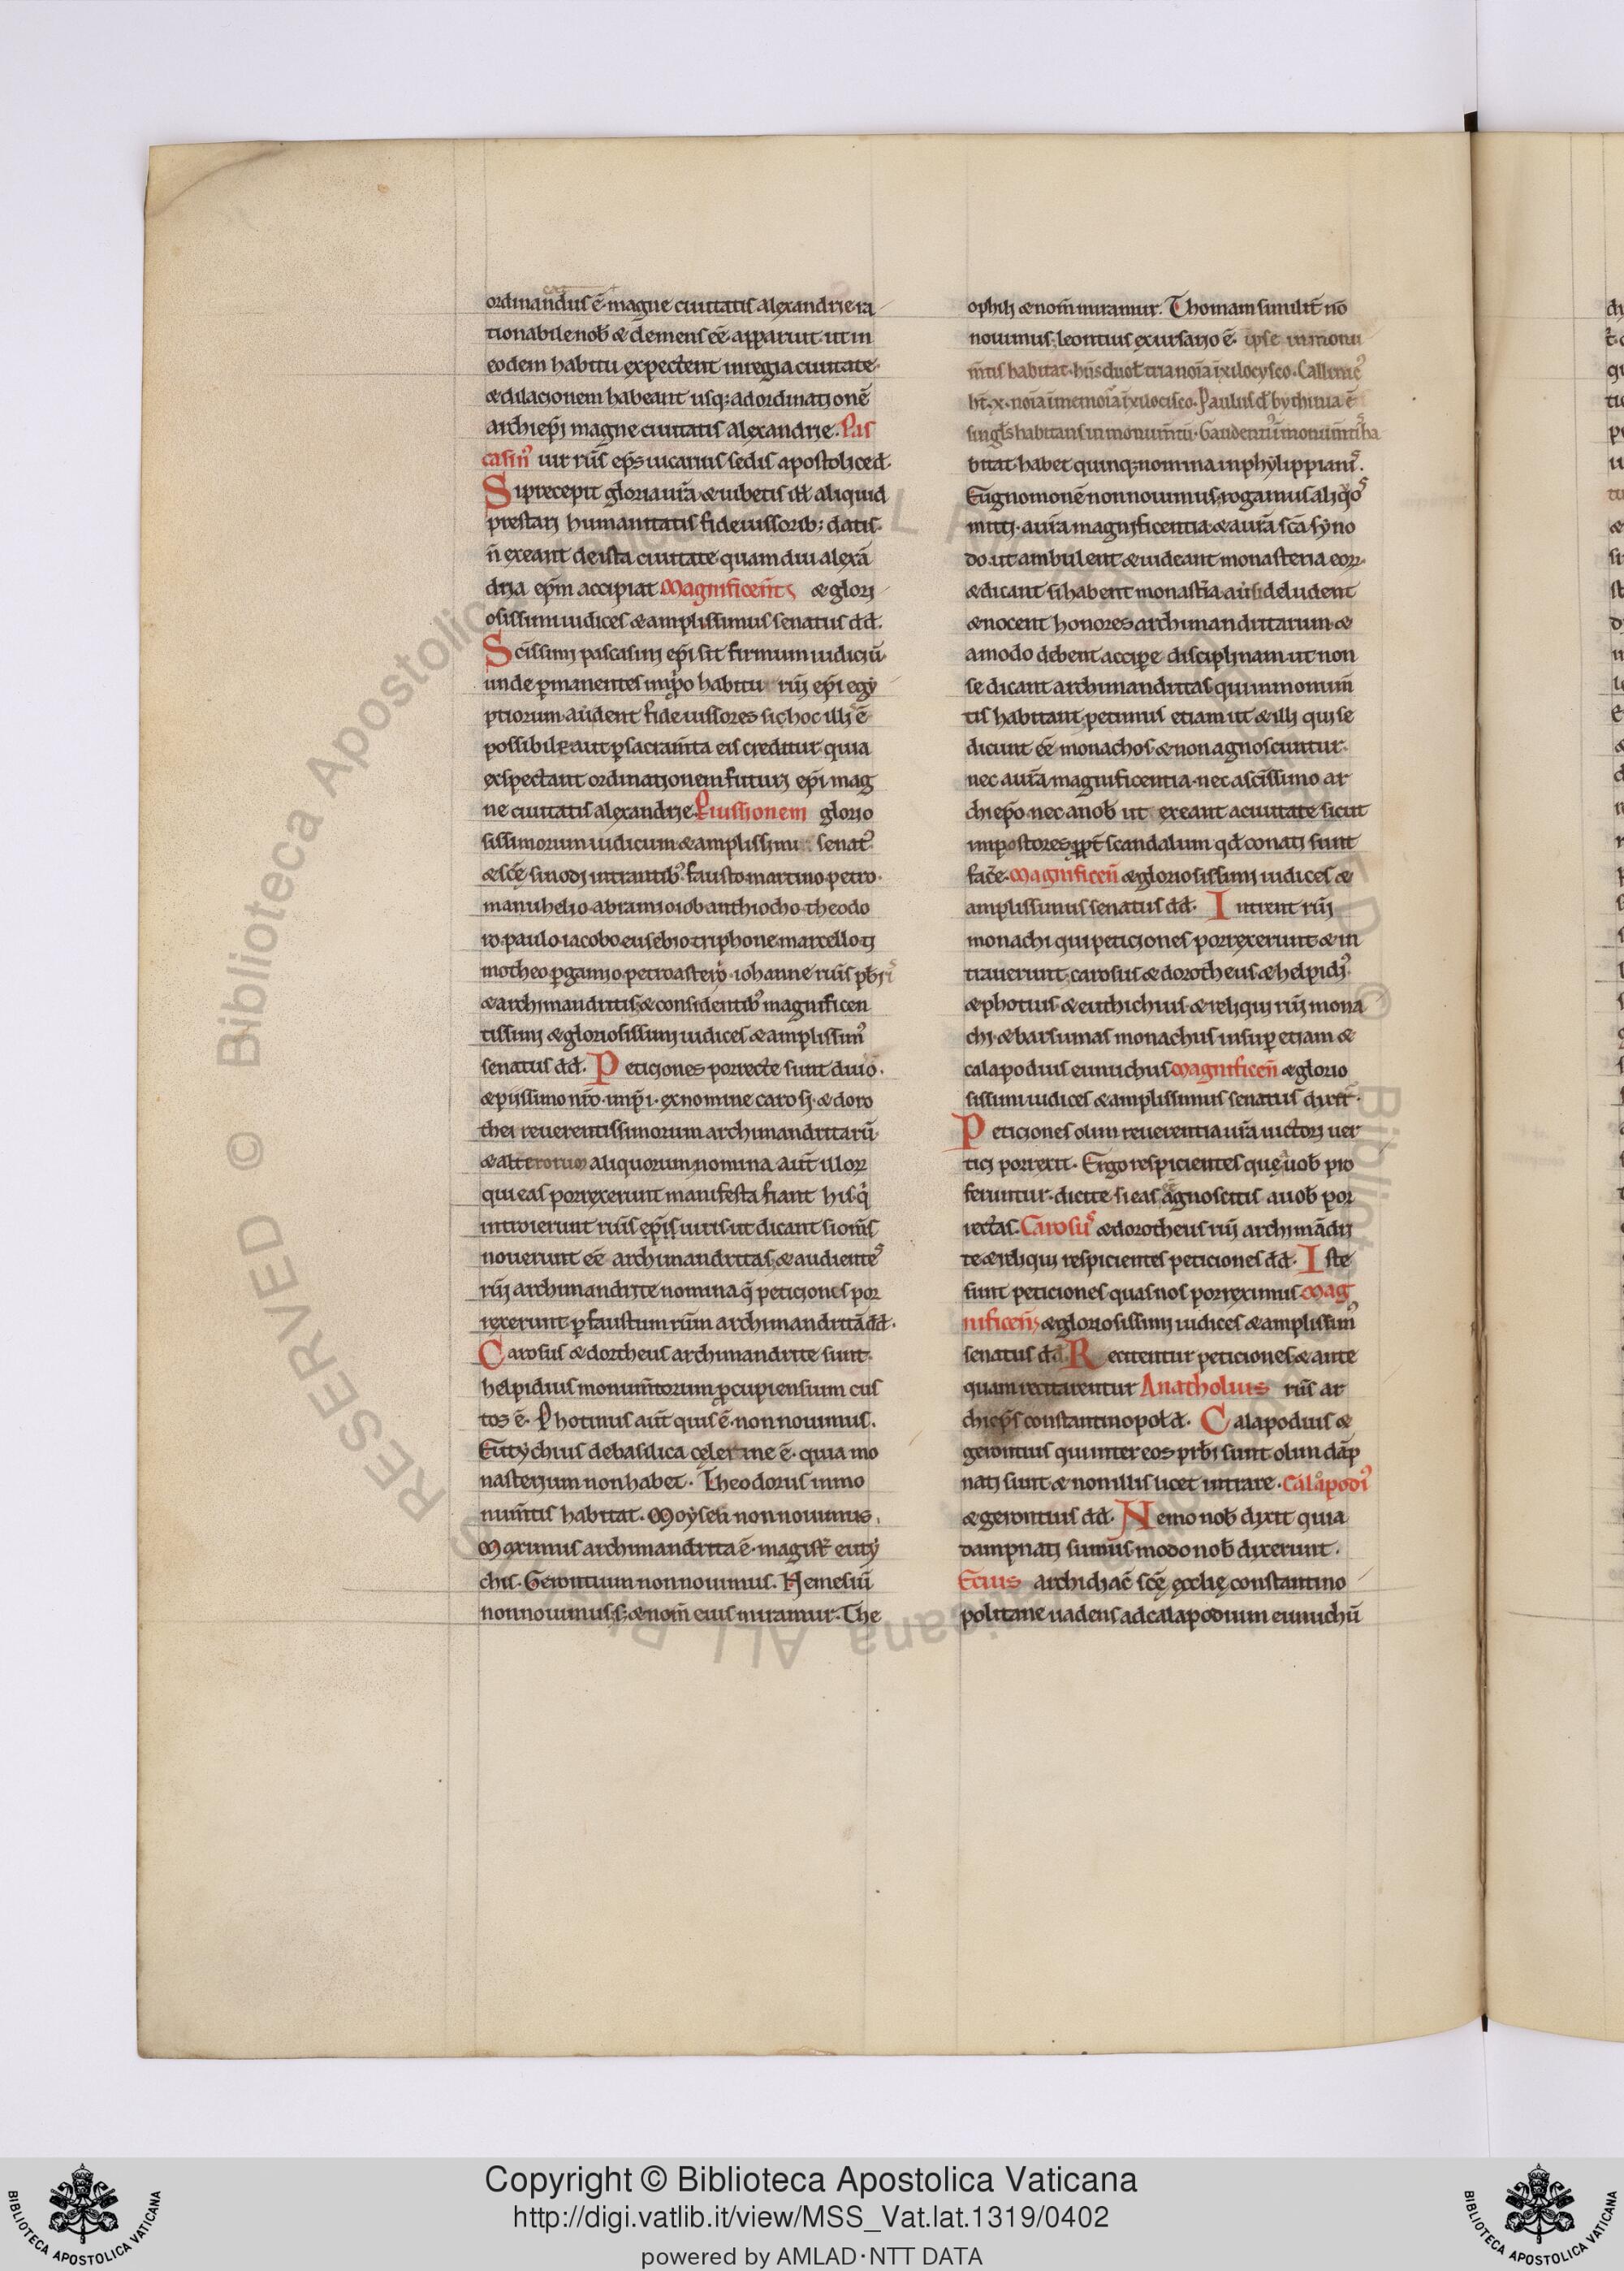 ordinandus ē magne ciuitatis alexandrie ra
tionabile nob̄ & clemens eē apparuit ut in
eodem habitu expectent in regia ciuitate
& dilacionem habeant usq; ad ordinationē
archiep̄i magne ciuitatis alexandrie. Pas
casin᾽ uir rūs ep̄s uicarius sedis apostolice d̄.
Si precepit gloria ur̄a & iubetis ill̄ aliquid
prestari humanitatis fideiussorib; datis
n̄ exeant de ista ciuitate quam diu alexā
dria ep̄m accipiat Magnificent̄ & glori
osissimi iudices & amplissimus senatus dd̄.
Sc̄issimi pascasini ep̄i sit firmum iudiciū
unde ꝑmanentes in ꝓpo habitu rīj ep̄i egy
ptiorum aut dent fideiussores si hoc illis ē
possibile aut ꝑ sacram̄ta eis creditur quia
exspectant ordinationem futuri ep̄i mag
ne ciuitatis alexandrie. Eiussionem glorio
sissimorum iudicum & amplissimi senat᾽
& sc̄e sinodi intrantib᾽ fausto martino petro
manuhelio abramio iob anthiocho theodo
ro paulo iacobo eusebio triphone marcello ti
motheo ꝑgamio petro asterio iohanne rūis pb̄ris
& archimandritis & considentib᾽ magnificen
tissimi & gloriosissimi iudices & amplissim᾽
senatus dd̄. Peticiones porrecte sunt diuō
& piissimo nr̄o imp̄i ex nomine carosi & doro
thei reuerentissimorum archimandritarū
& alterorum aliquorum nomina aut illoꝝ
qui eas porrexerunt manifesta fiant his q̄
introierunt rūis ep̄is uiris ut dicant si om̄s
nouerunt eē archimandritas & audiente᾽
rīj archimandrite nomina q̄ peticiones por
rexerunt ꝑ faustum rūm archimandritā dd̄.
Carosus & dortheus archimandrite sunt
helpidius monum̄torum ꝓcupiensium cus
tos ē. Photinus aut̄ quis ē non nouimus.
Eutychius de basilica celerine ē quia mo
nasterium non habet. Theodorus in mo
num̄tis habitat. Moyseti non nouimus.
Maximus archimandrita ē magist̄ euty
chis. Gerontium non nouimus. Nemesiū
non nouimus; & nom̄ eius miramur. The
ophili & nom̄ miramur. Thomam similit̄ nō
nouimus. leontius ex ursario ē ipse in monu
m̄tis habitat
bitat habet quinq; nomina in phylippian᾽.
Eugnomonē non nouimus; rogamus aliq᾽os
mitti a ur̄a magnificentia & a ur̄a sc̄a syno
do ut ambulent & uideant monasteria eoꝝ
& dicant si habent monast̄ia aut si deludent
& nocent honores archimandritarum &
amodo debent accipe disciplinam ut non
se dicant archimandritas qui in monum̄
tis habitant; petimus etiam ut & illi qui se
dicunt eē monachos & non agnoscuntur
nec a ur̄a magnificentia nec a sc̄issimo ar
chiep̄o nec a nob̄ ut exeant a ciuitate sicut
impostores ꝓpt̄ scandalum qd̄ conati sunt
fac̄e. Magnificen̄ & gloriosissimi iudices &
amplissimus senatus dd̄. Intrent rīj
monachi qui peticiones porrexerunt & in
trauerunt carosus & dorotheus & helpidi᾽
& photius & euthichius & reliqui rīj mona
chi & barsumas monachus insuꝑ etiam &
calapodius eunuchus Magnificen̄ & glorio
sissimi iudices & amplissimus senatus dixer̄.
Peticiones olim reuerentia ur̄a uictori uer
tici porrexit. Ergo respicientes que a uob̄ pro
feruntur dicite si eas agnoscitis a uob̄ por
rectas. Carosu᾽ & dorotheus rīj archimādri
te & reliqui respicientes peticiones dd̄. Iste
sunt peticiones quas nos porreximus Mag
nificen̄ & gloriosissimi iudices & amplissim᾽
senatus dd̄. Recitentur peticiones & ante
quam recitarentur Anatholius rūs ar
chiep̄s constantinopol̄ d̄. Calapodius &
gerontius qui inter eos prb̄i sunt olim dāp
nati sunt & non illis licet intrare. Calapodi᾽
& gerontius dd̄. Nemo nob̄ dixit quia
dampnati sumus modo nob̄ dixerunt.
Ecius archidiac̄ sc̄e ecclię constantino
politane uadens ad calapodium eunuchū
Copyright © Biblioteca Apostolica Vaticana
http://digi.vatlib.it/view/MSS_Vat.lat.1319/0402
powered by AMLAD·NTT DATA
BIBLIOTECA APOSTOLICA VATICANA
BIBLIOTECA APOSTOLICA VATICANA